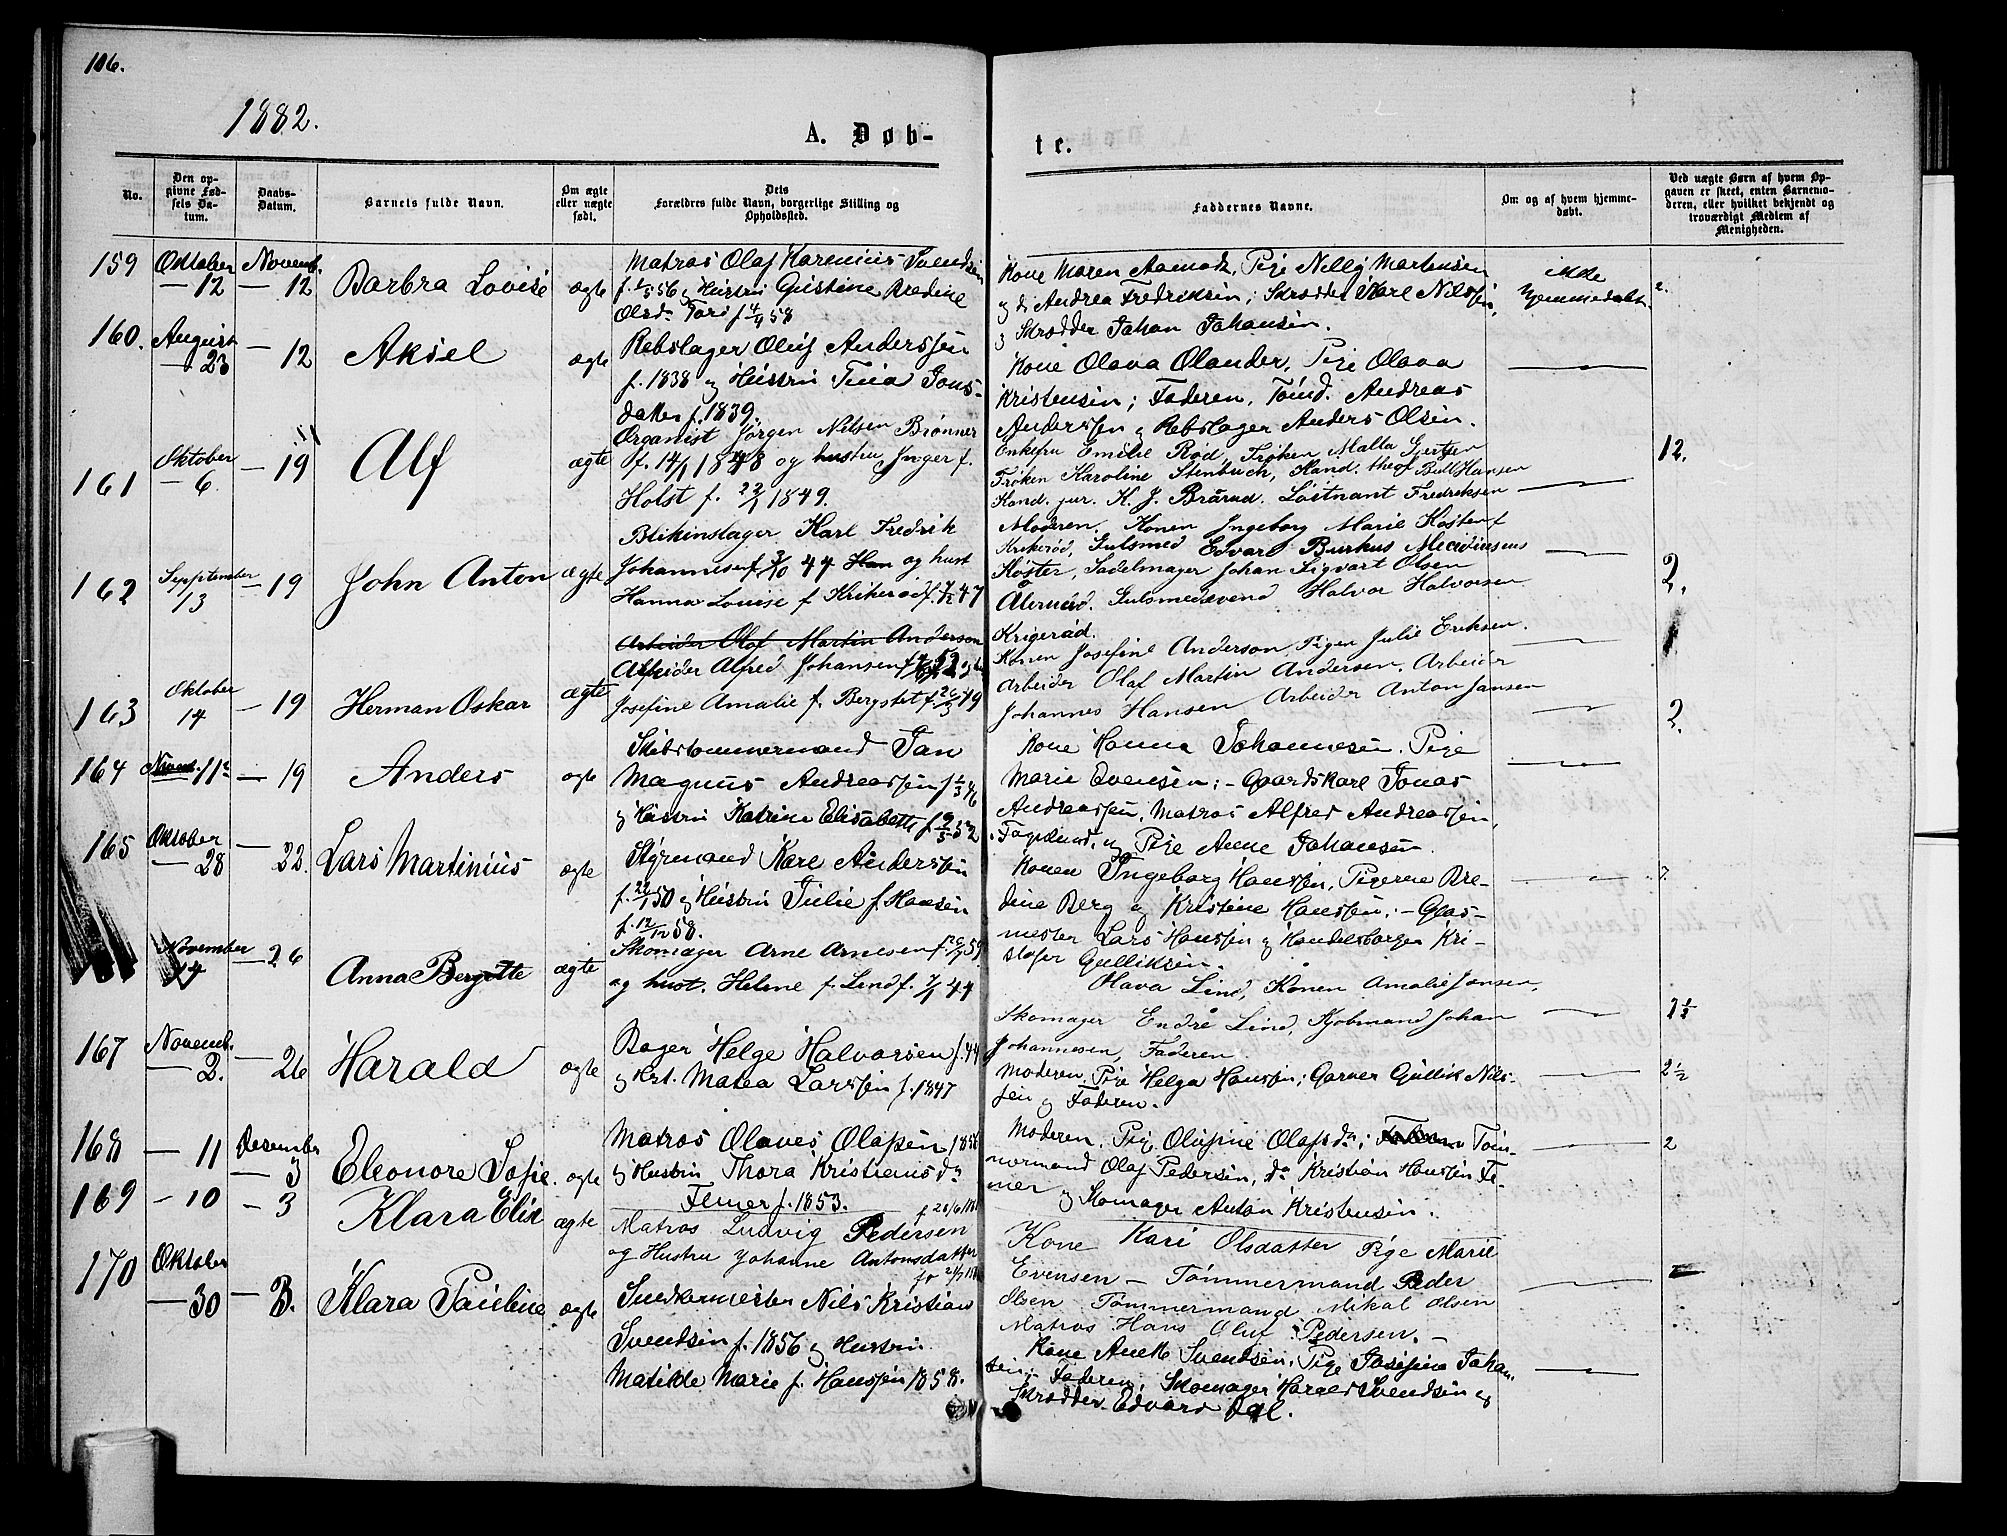 106.
1882.
A. Døb-
te.
No.
Den op-
givne Fød-
sels Da-
tum.
Daabs-
Datum.
Barnets fulde Navn.
Om ægte
eller uægte
født.
Dets
Forældres fulde Navn, borgerlige Stilling og
Opholdssted.
Faddernes Navne.
Om og af hvem hjemme-
døbt.
Ved uægte Børn af hvem Op-
gaven er skeet, enten Barnemo-
deren, eller hvilket bekjendt og
troværdigt Medlem af
Menigheden.
159 Oktober Novemb.
— 12 — 12 Barbra Lovise ægte
Matros Olaf Karenius Svendsen
og Hustru Gustine Bredine
Olsd. f 58
Kone Maren Aamodt, Pige Nelly Martensen
og do Andrea Fredriksen; Skrædder Karl Nilssen,
og Skrædder Johan Johansen.
ikke
hjemmedøbt
2.
160. August
— 23 — 12 Aksel ægte
Rebslager Oluf Anderssen
f. 1838 og Hustru Tina Jons-
datter f. 1839.
Kone Olava Olander, Pige Olava
Kristensen; Faderen, Tømd. Andreas
Anderssen og Rebslager Anders Olsen.
161 Oktober
— 6 — 19 Alf ægte
Organist Jörgen Nilsen Brønner
f. 14/1 1848 og hustru Inger f.
Holst f. 22/1 1849.
Enkefru Emilie Rød, Frøken Malla Gjertsen
Frøken Karoline Stenbuch, Kand. theol Bull Hansen
Kand. jur. K. J. Brårud. Løitnant Fredriksen
12.
162 Septtember
13 — 19 John Anton ægte
Blikinslager Karl Fredrik
Johannesen f. 3/10 44 Ham og hust
Hanna Louise f Krikerød f. 47
Moderen. Konen Ingeborg Marie Køster f
Krikerød, Gulsmed Edvard Burkus
Køster, Sadelmager Johan Sigvart Olsen
Gulsmedsvend Halvor Halvorsen
Krigerød.
2.
163 Oktober
14 — 19 Herman Oskar ægte
Arbeider Olaf Martin Anderson
Arbeider Alfred Johansen
Josefine Amalie f. Bergstet f. 49
Konen Josefine Anderson, Pigen Julie Eriksen.
Arbeider Olaf Martin Andersen, Arbeider
Johannes Hansen Arbeider Anton Jansen
2.
164 Novmb. 11te — 19 Anders ægte
Skibstømmermand Jan
Magnus Andreassen f 46
og Hustru Katrine Elisabette f 9/5 52
Kone Hanna Johannesen. Pige
Marie Evensen; - Gaardskarl Jonas
Andreassen, Matros Alfred Andreassen,
og Pige Anne Johansen.
165 Oktober
— 28 — 22. Lars Martinius ægte
Styrmand Karl Anderssen
f. 50 og Hustru Julie f. Hansen
f. 12/12 58.
Konen Ingeborg Hanssen, Pigerne Bre-
dine Berg og Kristine Hanssen; - Glas-
mester Lars Hanssen og Handelsborger Kri-
stofer Gulliksen.
November
14 — 26 Anna Bergitte ægte
Skomager Arne Arnesen f. 59.
og hust. Heline f. Lind f. 7/1 44
Olava Lind, Konen Amalie Jansen,
Skomager Endre Lind, Kjøbmand Johan
Johannesen, Faderen.
167 Novemb.
— 2. — 26 Harald ægte
Bager Helge Halvorsen f. 44
og Hst. Matea Larssen f. 1847
Moderen, Pige Helga Hanssen; Garver Gullik Nils-
sen og Faderen.
2 1/2
168 — 11 Desember
— 3 Eleonore Sofie. ægte
Matros Olaves Olassen 1856
og Hustru Thora Kristiansdr.
Femer f. 1853.
Moderen. Pige Olufine Olafsdr; Faderen Tøm-
mermand Olaf Pedersen, do Kristian Hanssen Fe-
mer og Skomager Anton Kristensen.
2
169 — 10 — 3 Klara Elise ægte
Matros Ludvig Pedersen
og Hustru Johanne Antonsdatter
Kone Kari Olsdatter Pige Marie
Evensen — Tömmermand Peder
Olsen Tömmermand Mikal Olsen
Matros Hans Oluf Pedersen. —
170 Oktober
— 30 — 3. Klara Pauline ægte
Snedkermester Nils Kristian
Svendsen f. 1856 og Hustru
Matilde Marie f. Hanssen 1858.
Kone Anette Svendsen, Pige Josefine Johan-
sen; Faderen, Skomager Harald Svendsen og
Skrædder Edvard Dal.